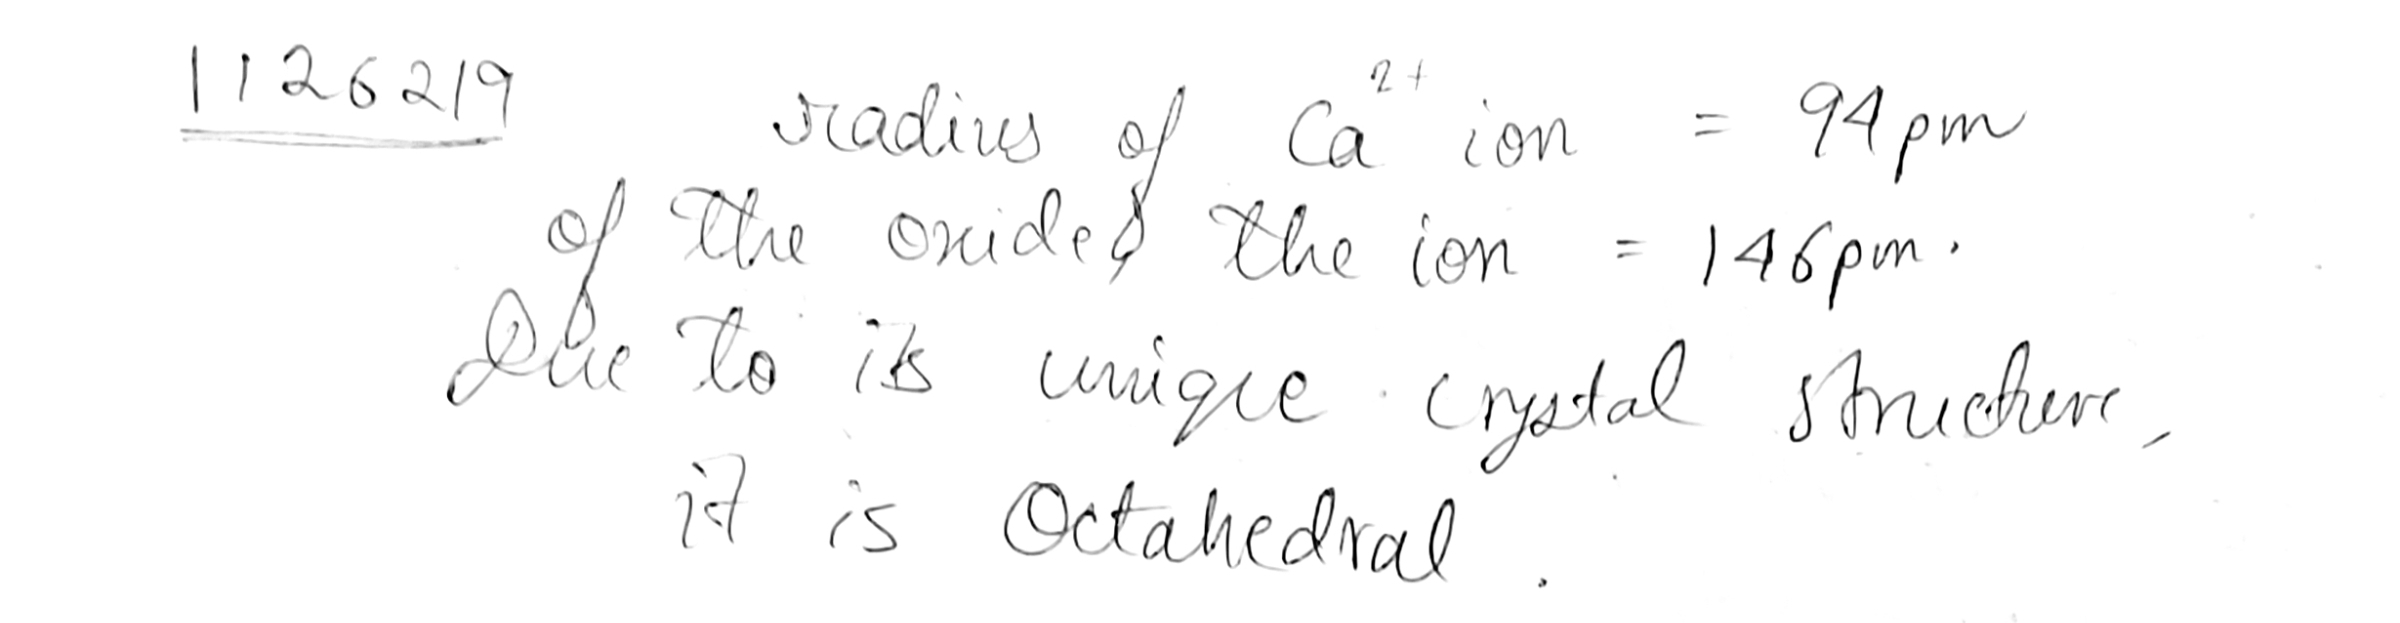 1126219
radius of Ca²⁺ ion = 94pm
of the oxides the ion = 146pm.
Due to its unique crystal structure,
it is Octahedral.